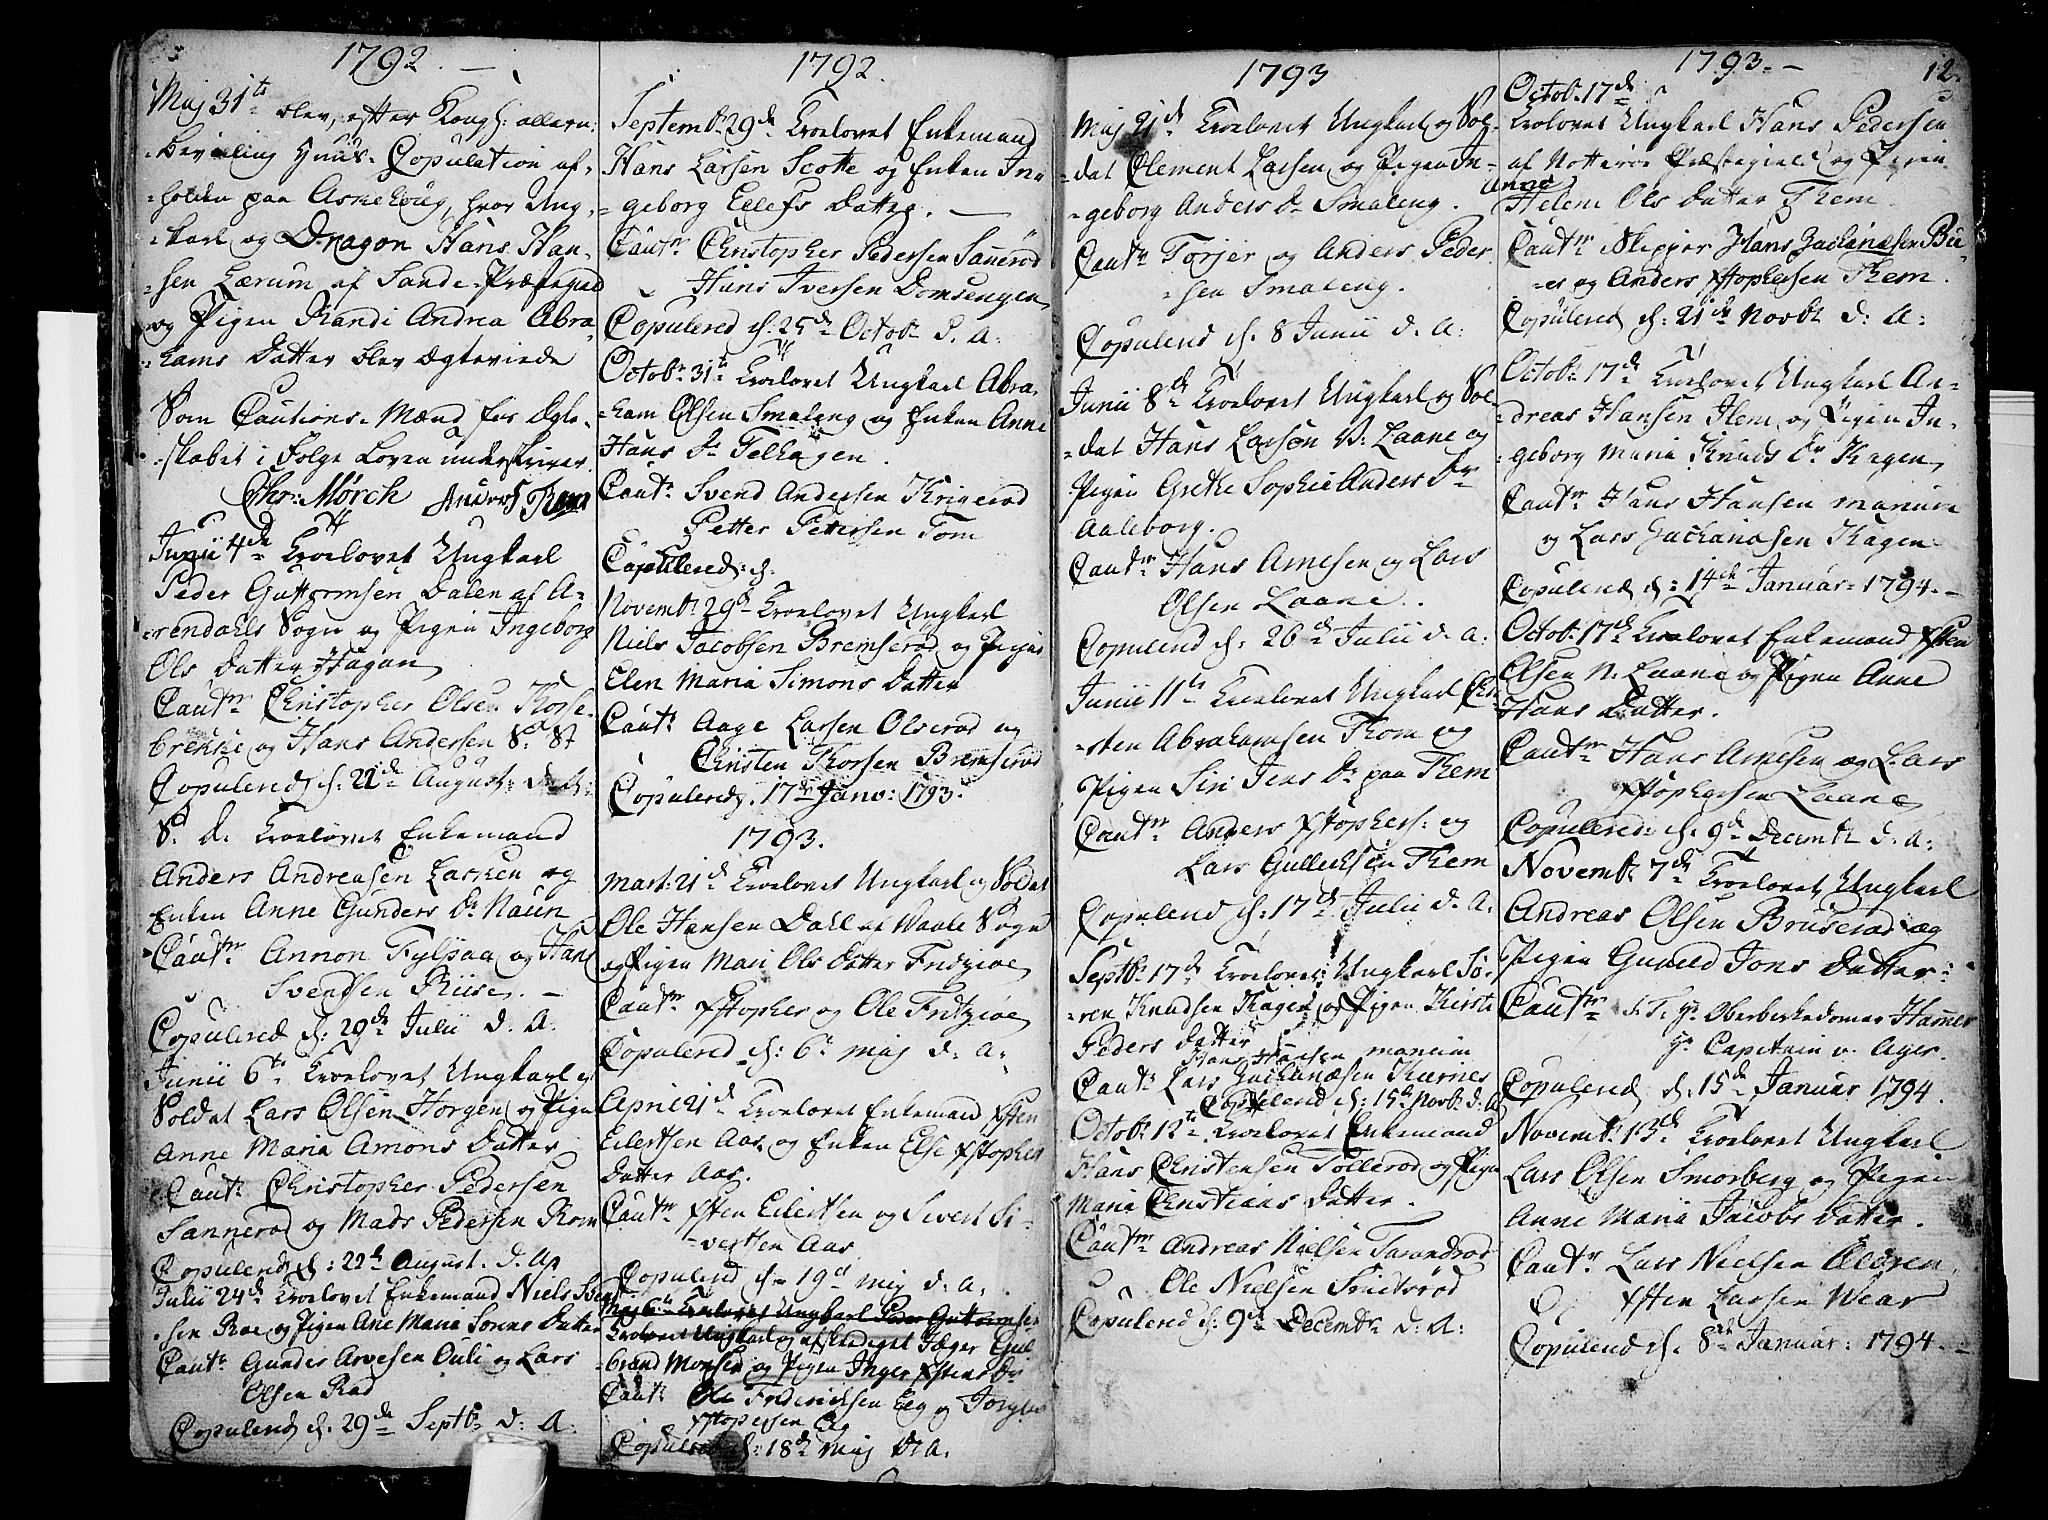 1792.
Maj 31te blev, efter Kongl: allern:
Bevilling Huus-Copulation af-
holden paa Askehoug, hvor Ung-
karl og Dragon Hans Han-
sen Lærum af Sande Præstegield
og Pigen Randi Andrea Abra-
hams Datter blev Ægteviede
Som Cautions-Mænd for Ægte-
skabet i Følge Loven underskriver
Chr: Mørch Anders Rem
Junii 4de Trolovet Ungkarl
Peder Guttormsen Dalen af A-
rendahls Sogn og Pigen Ingeborg
Ols Datter Hagan
Cautrn Christopher Olsen Thorse-
brekke og Hans Andersen S: St
Copulered d: 22de August: d: A:
S. d. Trolovet Enkemand
Anders Andreasen Lasken og
Enken Anne Gunders Dr Naun
Cautrn Annon Fylpaa og Hans
Svendsen Riise. —
Copulered d: 29de Julii d. A.
Junii 6te Trolovet Ungkarl og
Soldat Lars Olsen Horgen og Pigen
Anne Maria Amons Datter
Cautr Christopher Pedersen
Sannerød og Mads Pedersen Rom
Copulered d: 22de August. d. A
Julii 24de Trolovet Enkemand Niels
sen Roe og Pigen Ane Maria Sørens Datter
Cautr Gunder Arvesen Ouli og Lars
Olsen Rød
Copulered d. 29de Septbr d. A.
1792.
Septembr 29de Trolovet Enkemand
Hans Larsen Scotte og Enken In-
geborg Eilefs Datter. —
Cautrn Christopher Pedersen Sanerød
Hans Iversen Domsengen
Copulered d. 25de Octobr d. A.
Octobr 31te Trolovet Ungkarl Abra-
ham Olsen Smaleng og Enken Anne
Hans Dr Felhagen.
Cautr Svend Andersen Krigerød
Petter Pettersen Tom
Copulered d.
Novembr 29de Trolovet Ungkarl
Niels Jacobsen Bremserød og Pigen
Elen Maria Simons Datter
Cautr Aage Larsen Olserød og
Christen Thorsen Bremserød
Copulered 17de Janv: 1793.
1793.
Mart: 21de Trolovet Ungkarl og Soldat
Ole Hansen Dahl af Vaale Sogn
og Pigen Mari Ols Datter Fritzøe
Cautrn Xstopher og Ole Fritzøe
Copulered d: 6te Maj d: A:
April 21de Trolovet Enkemand Xsten
Eilertsen Aas og Enken Else Xstophers
Datter Aas.
Cautrn Xsten Eilertsen og Sivert Si-
vertsen Aas
Copulered d. 19de Maj d. A.
Maj 6te Trolovet Ungkarl Peder Guttormsen
Trolovet Ungkarl og afskediget Jæger Gul-
brand Monsen og Pigen Inger Xstens Dr
Cautr Ole Fridericksen Eeg og
Xstophersen Eeg
Copulered d: 18de Maj d. A.
1793
Maj 21de Trolovet Ungkarl og Sol-
dat Clement Larsen og Pigen In-
geborg Anders Dr Smaleng.
Cautrn Torjer og Anders Peder-
sen Smaleng.
Copulered d. 8 Junii d. A:
Junii 8de Trolovet Ungkarl og Sol-
dat Hans Larsen V: Laane og
Pigen Grethe Sophie Anders Dr
Aaleborg.
Cautrn Hans Arnesen og Lars
Olsen Laane.
Copulered d. 26de Julii d. A:
Junii 11te Trolovet Ungkarl Chri-
sten Abrahamsen Thom og
Pigen Siri Jens Dr paa Rem
Cautrn Anders Xstophers: og
Lars Gullicksen Rem
Copulered d: 17de Julii d. A.
Septbr 17de Trolovet Ungkarl Sø-
ren Knudsen Hagen og Pigen Kirsti
Peders Datter
Hans Hansen
Cautr Lars Zachariæsen Kiernes
Copulered d: 15de Novbr d: A
Octobr 12te Trolovet Enkemand
Hans Christensen Tollerød og Pigen
Maria Christians Datter.
Cautrn Andreas Nielsen Tarandrød
Ole Nielsen
Copulered d: 9de Decembr d: A:
1793. — 12.
Octobr 17de
Trolovet Ungkarl Hans Pedersen
af Nøtterøe Præstegield og Pigen
Anne
Helene Ols Datter Rem
Cautrn Skipper Hans Zachariæsen Bu-
er og Anders Xstophersen Rem.
Copulered d: 21de Novbr d: A:
Octobr 17de Trolovet Ungkarl An-
dreas Hansen Hem og Pigen In-
geborg Maria Knuds Dr Hagen
Cautrn Hans Hansen
og Lars Zachariasen Hagen
Copulered d: 14de Januar: 1794. —
Octobr 17de Trolovet Enkemand Xsten
Olsen N. Laane og Pigen Anne
Hans Datter.
Cautrn Hans Arnesen og Lars
Xstophersen Laane
Copulered d. 9de Decembr d. A.
Novembr 7de Trolovet Ungkarl
Andreas Olsen Bruserød og
Pigen Guneld Jons Datter.
Cautrn S. T. Hr Oberberhedomer Hammer
Hr Capitain v. Ager.
Copulered d: 15de Januar 1794.
Novembr 13de Trolovet Ungkarl
Lars Olsen Smorberg og Pigen
Anne Maria Jacobs Datter.
Cautr Lars Nielsen Œløren
Xsten Larsen Wear
Copulered d. 8de Januar: 1794. —